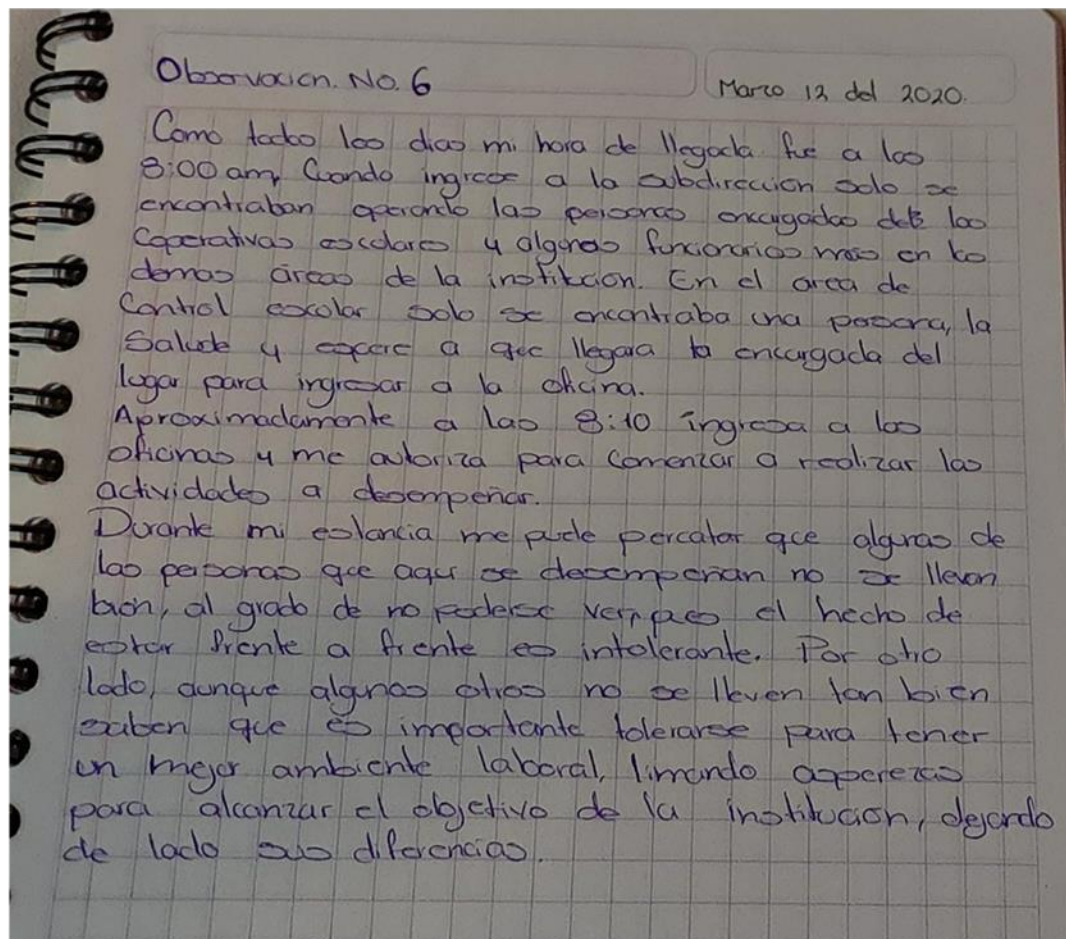 Observacion. No. 6
Marzo 12 del 2020.
Como todos los dias mi hora de llegada fue a las
8:00 am, Cuando ingrese a la subdireccion solo se
encontraban operando las personas encargadas de las
Coperativas escolares y algunos funcionarios mas en las
demas áreas de la institucion. En el area de
Control escolar solo se encontraba una persona, la
Salude y espere a que llegara la encargada del
lugar para ingresar a la oficina.
Aproximadamente a las 8:10 ingresa a las
oficinas y me autoriza para comenzar a realizar las
actividades a desempeñar.
Durante mi estancia me pude percatar que algunas de
las personas que aqui se desempeñan no se llevan
bien, al grado de no poderse ver, pues el hecho de
estar frente a frente es intolerante. Por otro
lado, aunque algunos otros no se lleven tan bien
saben que es importante tolerarse para tener
un mejor ambiente laboral, limando asperezas
para alcanzar el objetivo de la institucion, dejando
de lado sus diferencias.